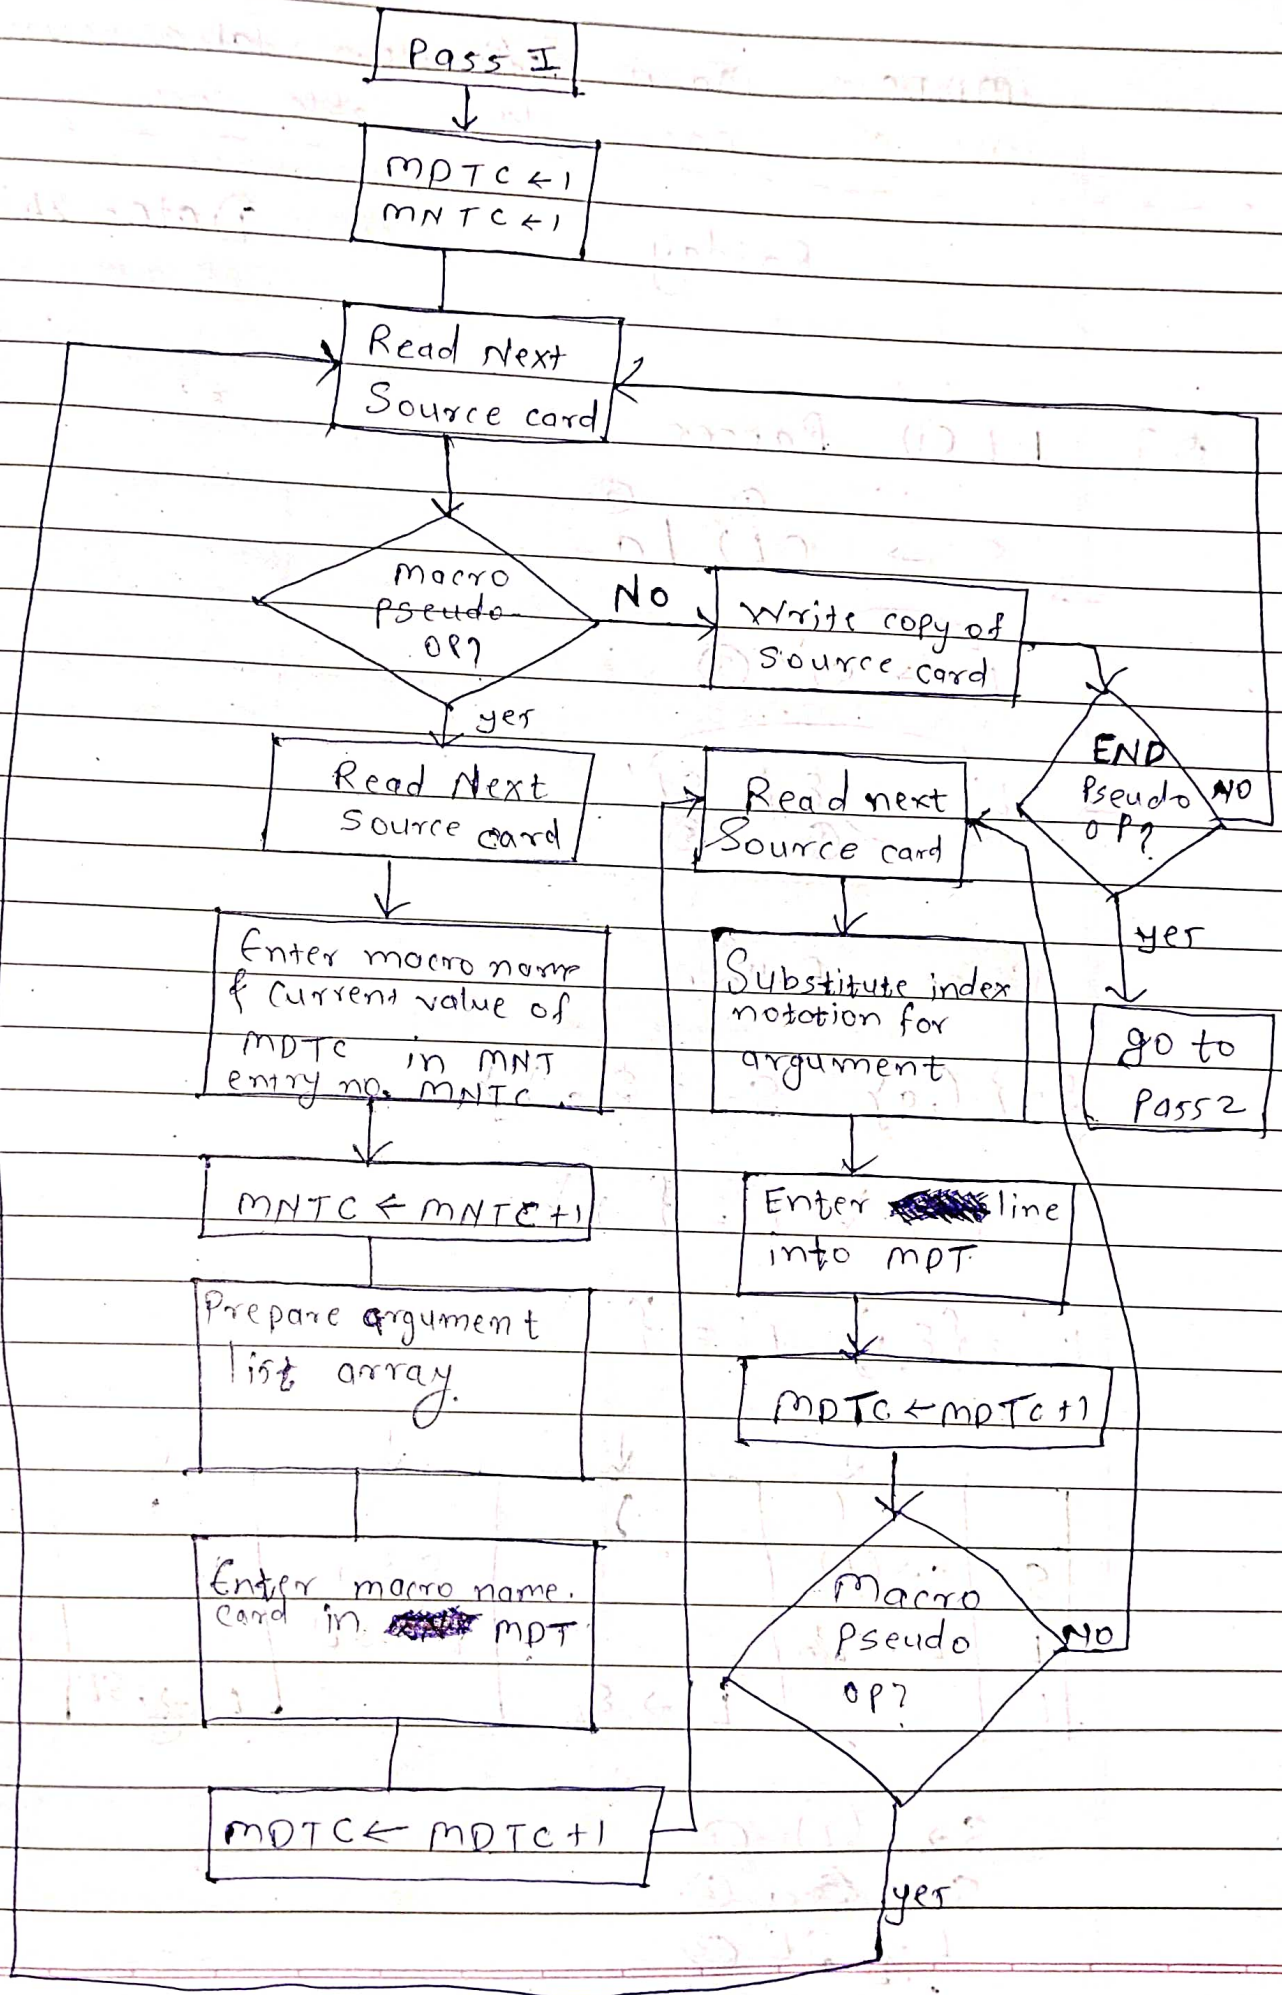 Pass I
MDTC ← 1
MNTC ← 1
Read Next
Source card
macro
pseudo
OP?
NO
Write copy of
Source card
yes
END
Pseudo
OP?
NO
yes
go to
Pass 2
Read Next
Source card
Enter macro name
& current value of
MDTC in MNT
entry no. MNTC
MNTC ← MNTC +1
Prepare argument
list array.
Enter macro name.
card in MDT
MDTC ← MDTC +1
Read next
Source card
Substitute index
notation for
argument
Enter line
into MDT
MDTC ← MDTC +1
Macro
Pseudo
OP?
NO
yes